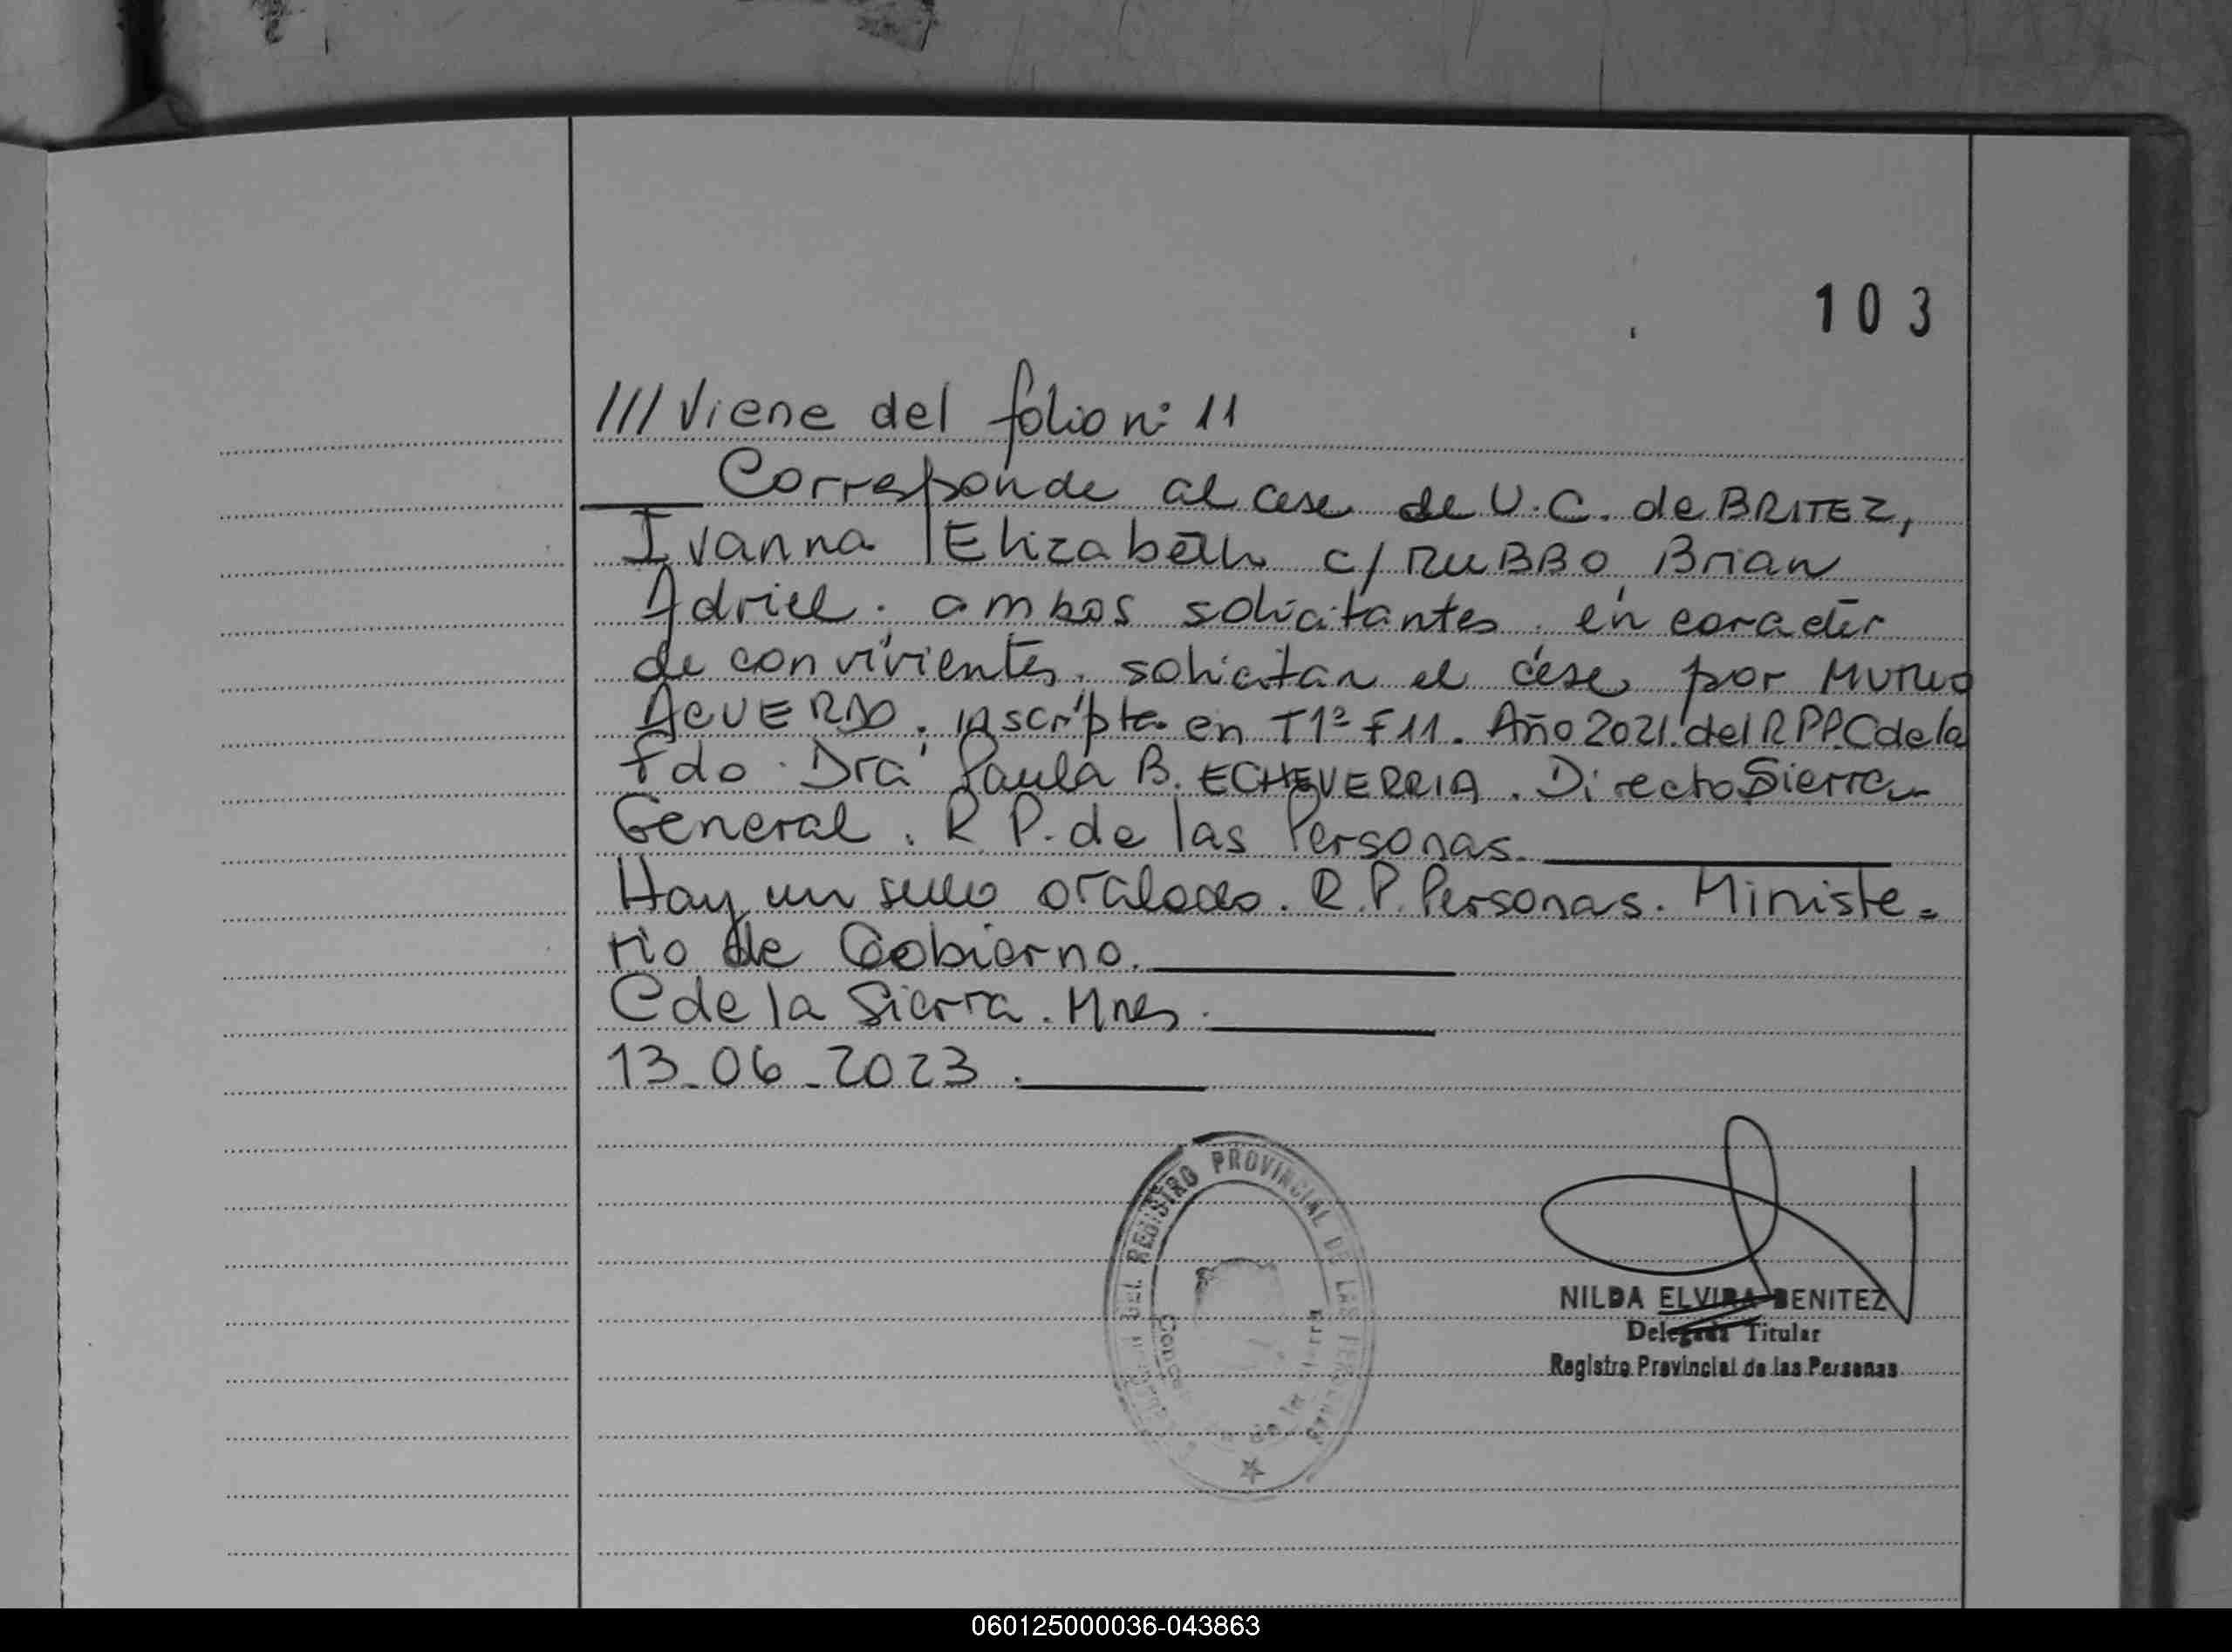 103
///Viene del folio nº 11
Corresponde al cese de U.C. de BRITEZ,
Ivanna Elizabeth c/ RUBBO Brian
Adriel. ambos solicitantes en caracter
de convivientes. solicitan el cese por MUTUO
ACUERDO. inscripta en T1º F11. Año 2021. del R PP.C de la
Fdo. Dra Paula B. ECHEVERRIA. Directo Sierra
General. R P. de las Personas.
Hay un sello ovalado. R.P. Personas. Ministe=
rio de Gobierno.
C de la Sierra. Mnes.
13-06-2023.
DEL REGISTRO PROVINCIAL DE LAS PERSONAS
de la Sierra
NILDA ELVIRA BENITEZ
Delegada Titular
Registro Provincial de las Personas
060125000036-043863